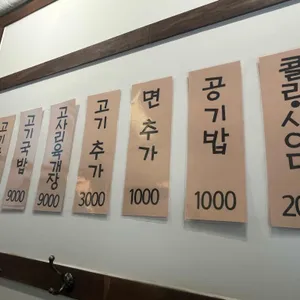 고기
고기국밥
9000
고사리육개장
9000
고기 추가
3000
면 추가
1000
공기밥
1000
콜라
20